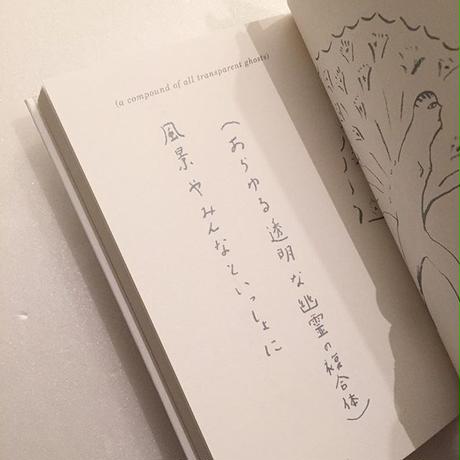 (a compound of all transparent ghosts)
(あらゆる透明な幽霊の複合体)
風景やみんなといっしょに